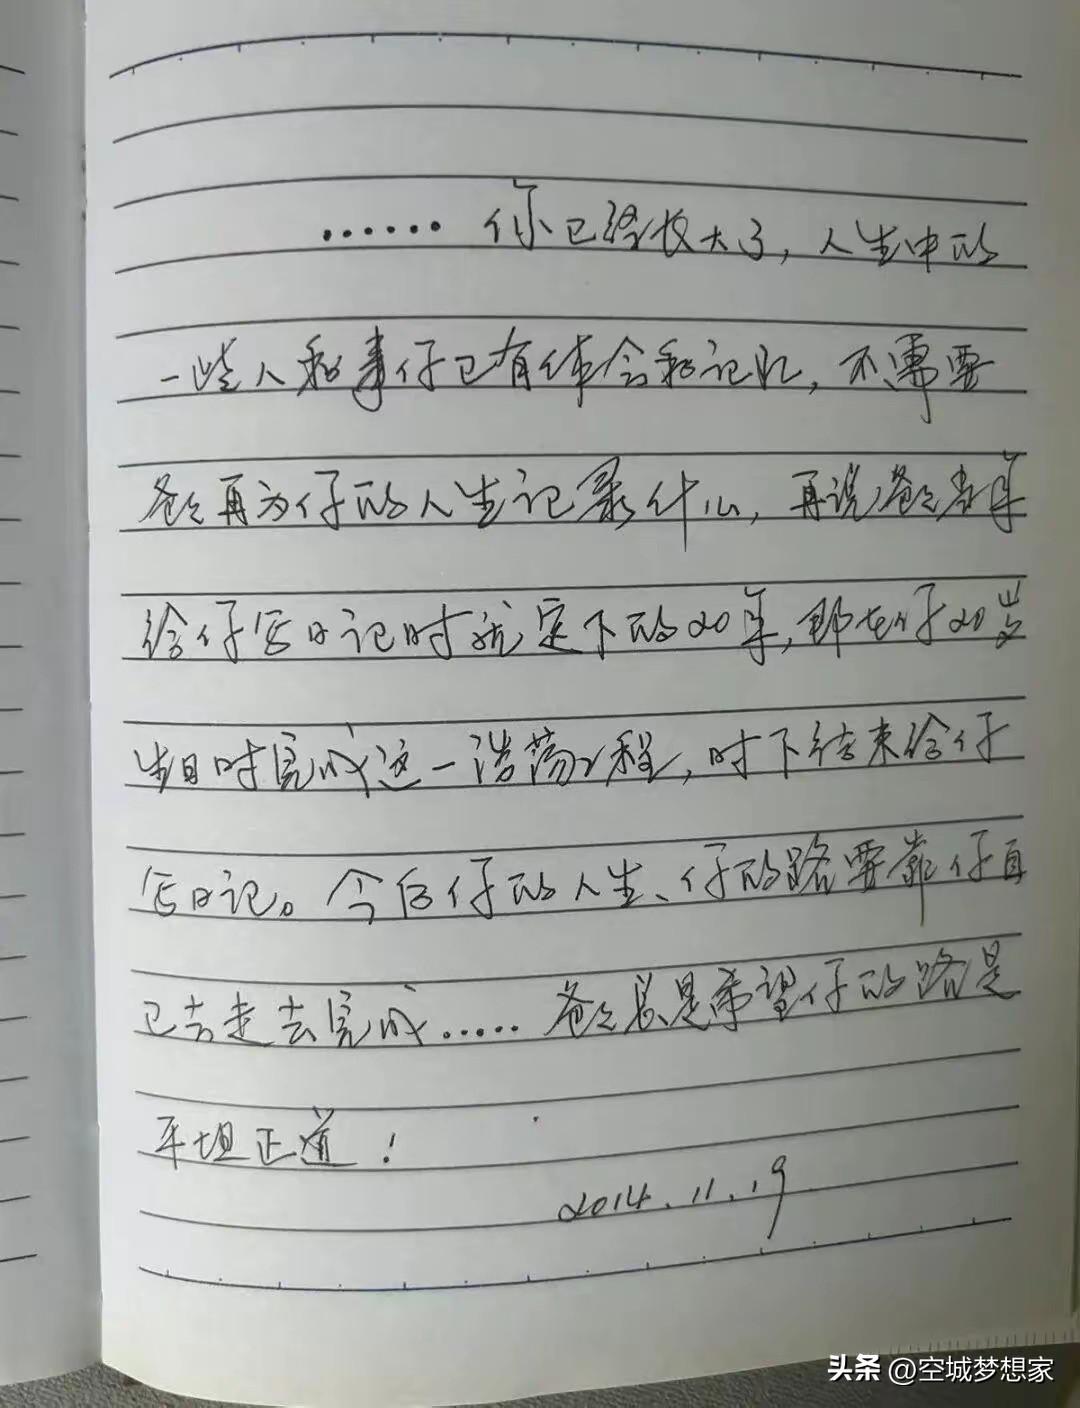 ......你已经长大了，人生中的
一些人和事仔已有体会和记忆，不需要
爸爸再为仔的人生记录什么，再说爸爸当年
给仔写日记时就定下的20年，即在仔20岁
生日时完成这一浩荡工程，时下结束给仔
写日记。今后仔的人生、仔的路要靠仔自
己去走去完成.....爸爸总是希望仔的路是
平坦正道！
2014.11.19
头条 @空城梦想家